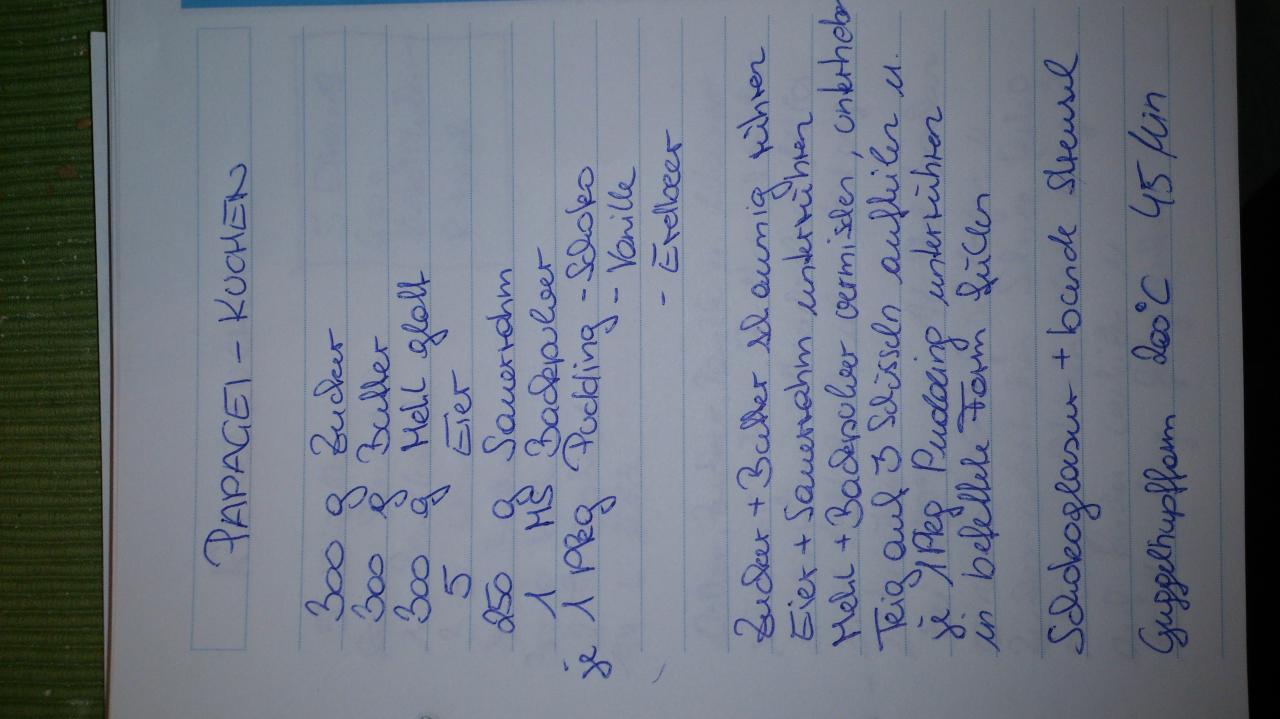 PAPAGEI - KUCHEN
300 g Zucker
300 g Butter
300 g Mehl glatt
5 Eier
250 g Sauerrahm
1 MS Backpulver
je 1 Pkg Pudding - Schoko
- Vanille
- Erdbeer
Zucker + Butter schaumig rühren
Eier + Sauerrahm unterrühren
Mehl + Backpulver vermischen, unterheben
Teig auf 3 Schüsseln aufteilen u.
je 1 Pkg Pudding unterrühren
in befettete Form füllen
Schokoglasur + bunte Streusel
Guggelhupfform 200°C 45 Min